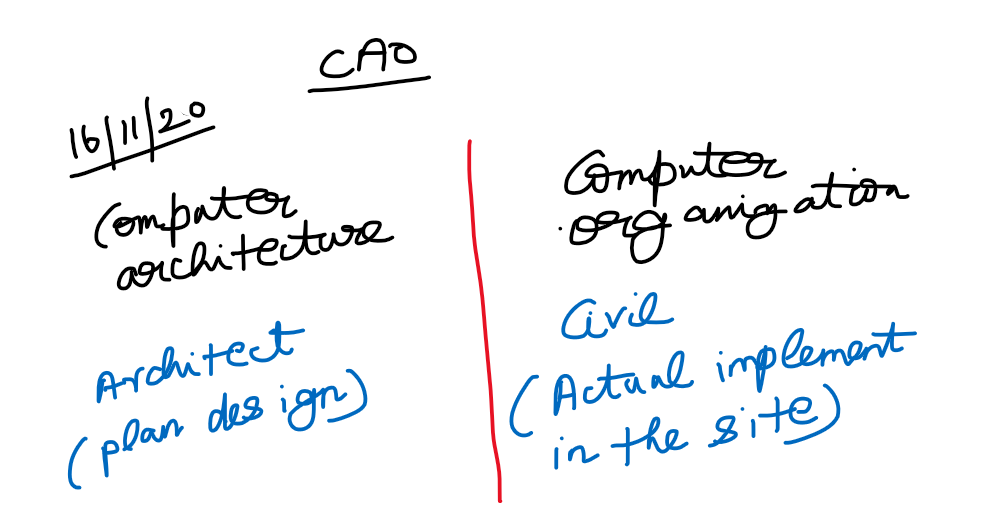 CAO
16/11/20
Computer
architecture
Architect
(plan design)
Computer
organization
Civil
(Actual implement
in the site)